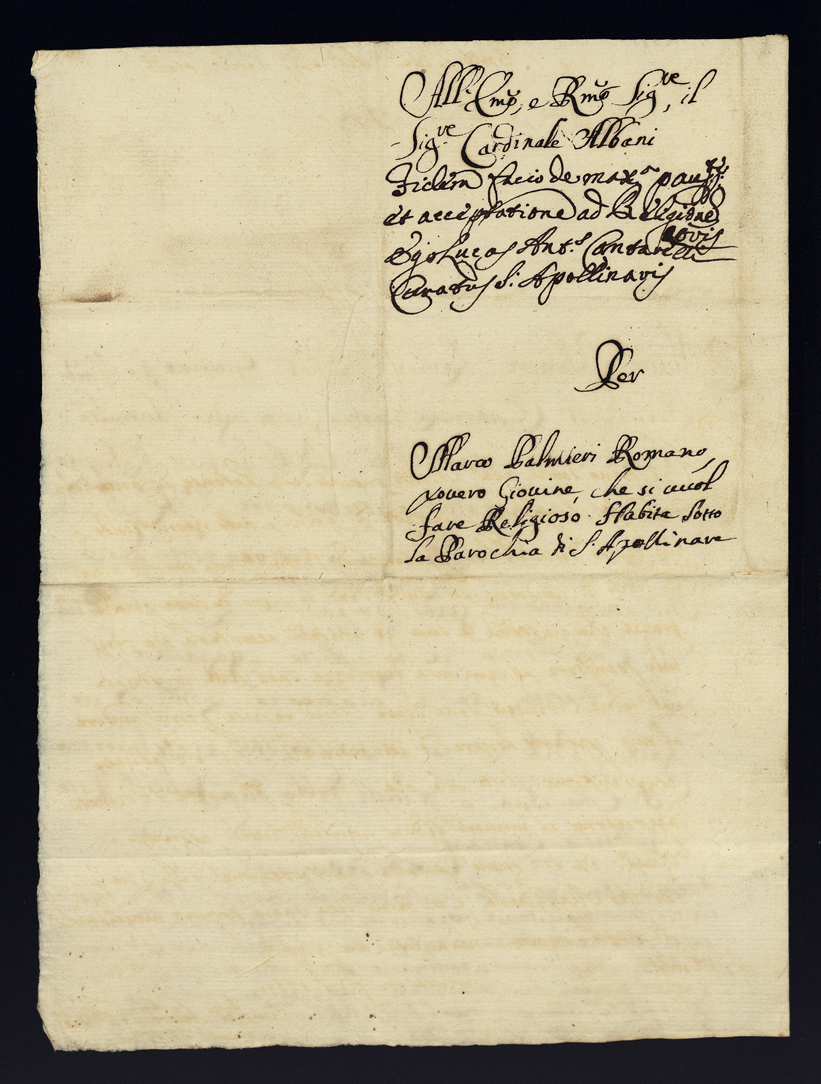 All' Emo, e Rmo Sigre, il
Sigre Cardinale Albani
Fidem facio de maxa
et acceptatione ad Religionem
Ego Lucas Ants Cantarelli
Curatus S. Apollinaris
Per
Marco Palmieri Romano,
povero Giovine, che si vuol
fare Religioso. Habita sotto
la Parochia di S. Apollinare